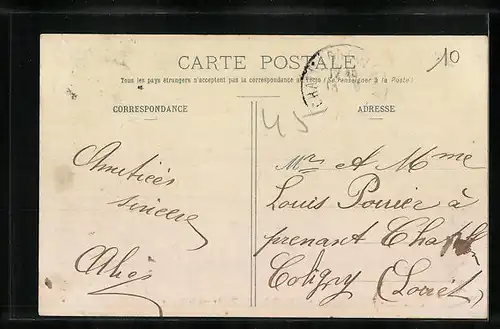 CARTE POSTALE
Tous les pays étrangers n'acceptent pas la correspondance au verso (Se renseigner à la Poste)
10
45
CORRESPONDANCE
ADRESSE
Amitiés
sincère
Mr et Mme
Louis Poirier à
prenant Chat
Coligny (Loiret)